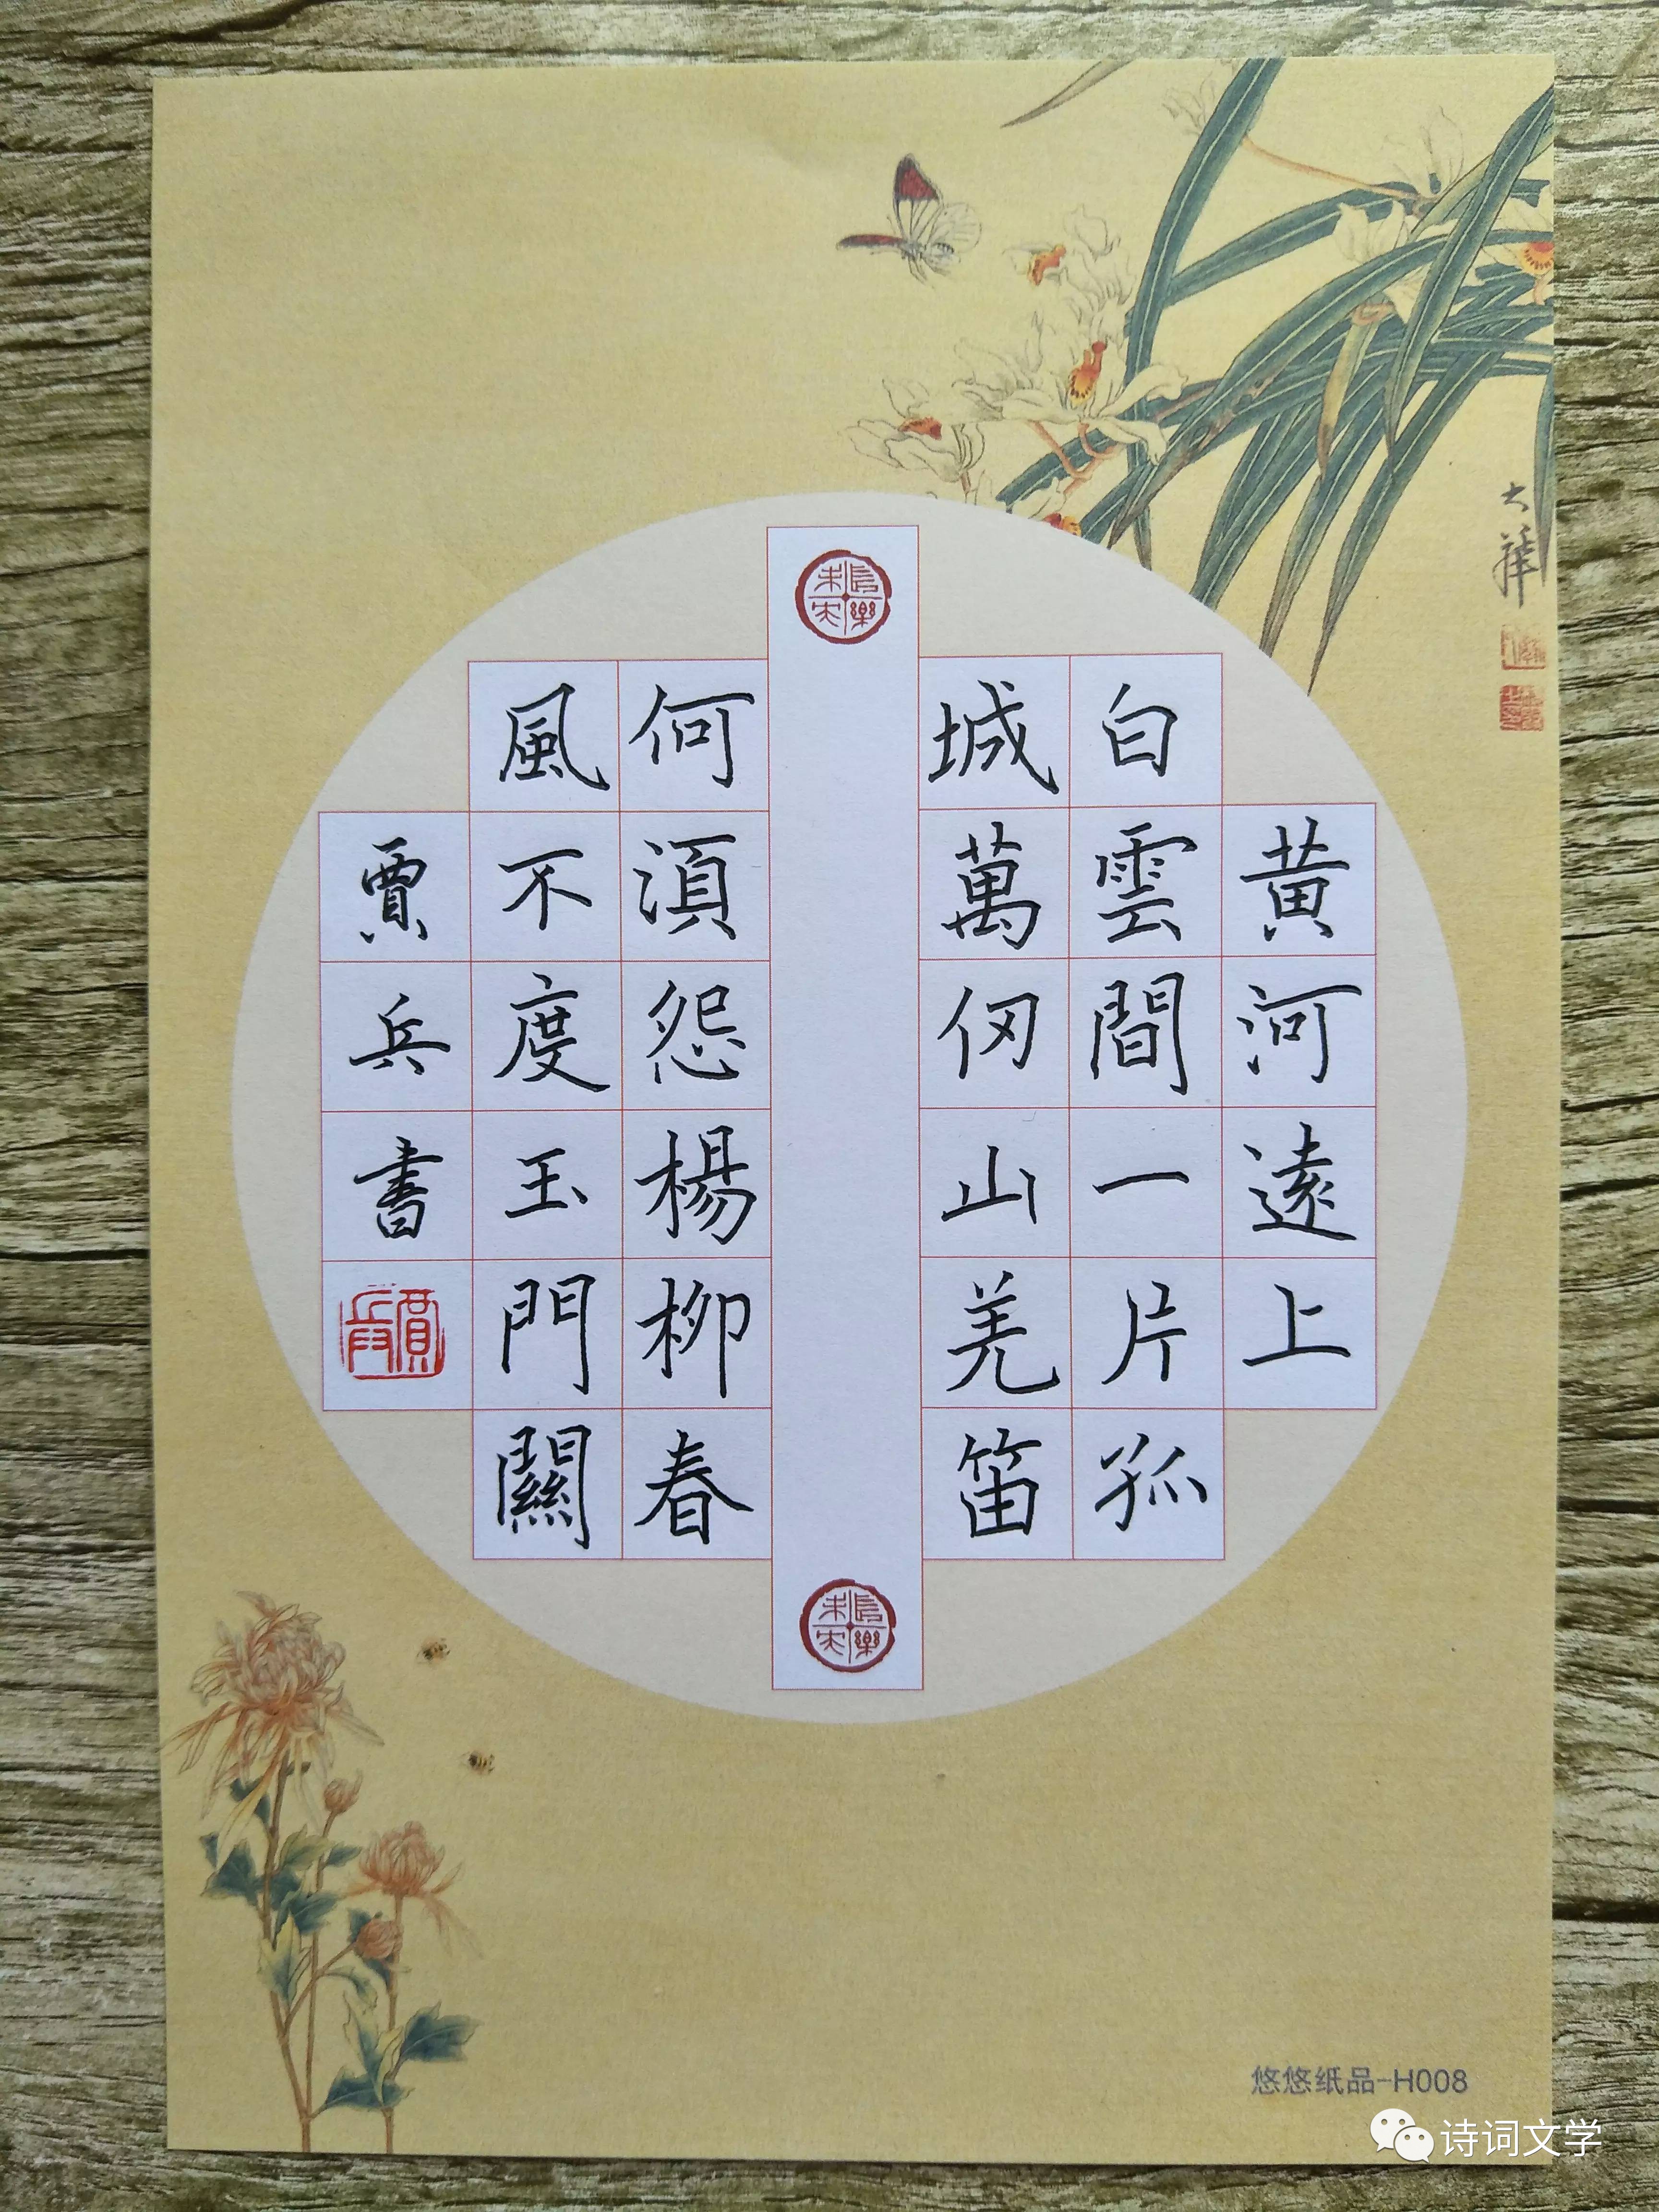 黄河遠上
白雲間一片孤
城萬仞山羌笛
何須怨楊柳春
風不度玉門關
賈兵書
長樂未央
長樂未央
悠悠纸品-H008
诗词文学